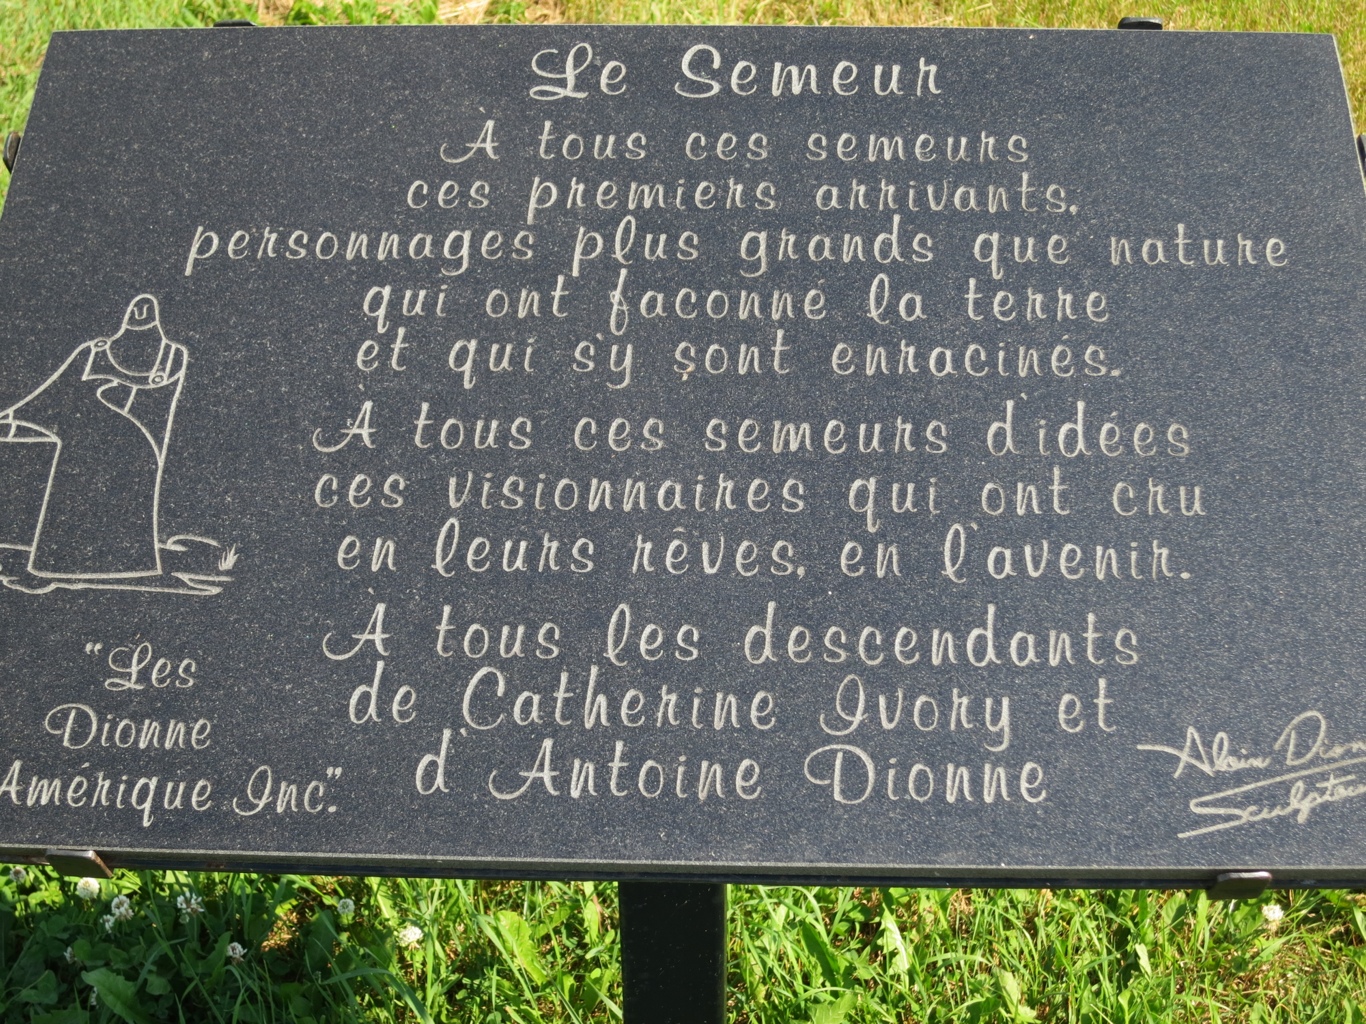 Le Semeur
À tous ces semeurs
ces premiers arrivants,
personnages plus grands que nature
qui ont faconné la terre
et qui s'y sont enracinés.
À tous ces semeurs d'idées
ces visionnaires qui ont cru
en leurs rêves, en l'avenir.
À tous les descendants
de Catherine Ivory et
d'Antoine Dionne
"Les
Dionne
Amérique Inc."
Alain